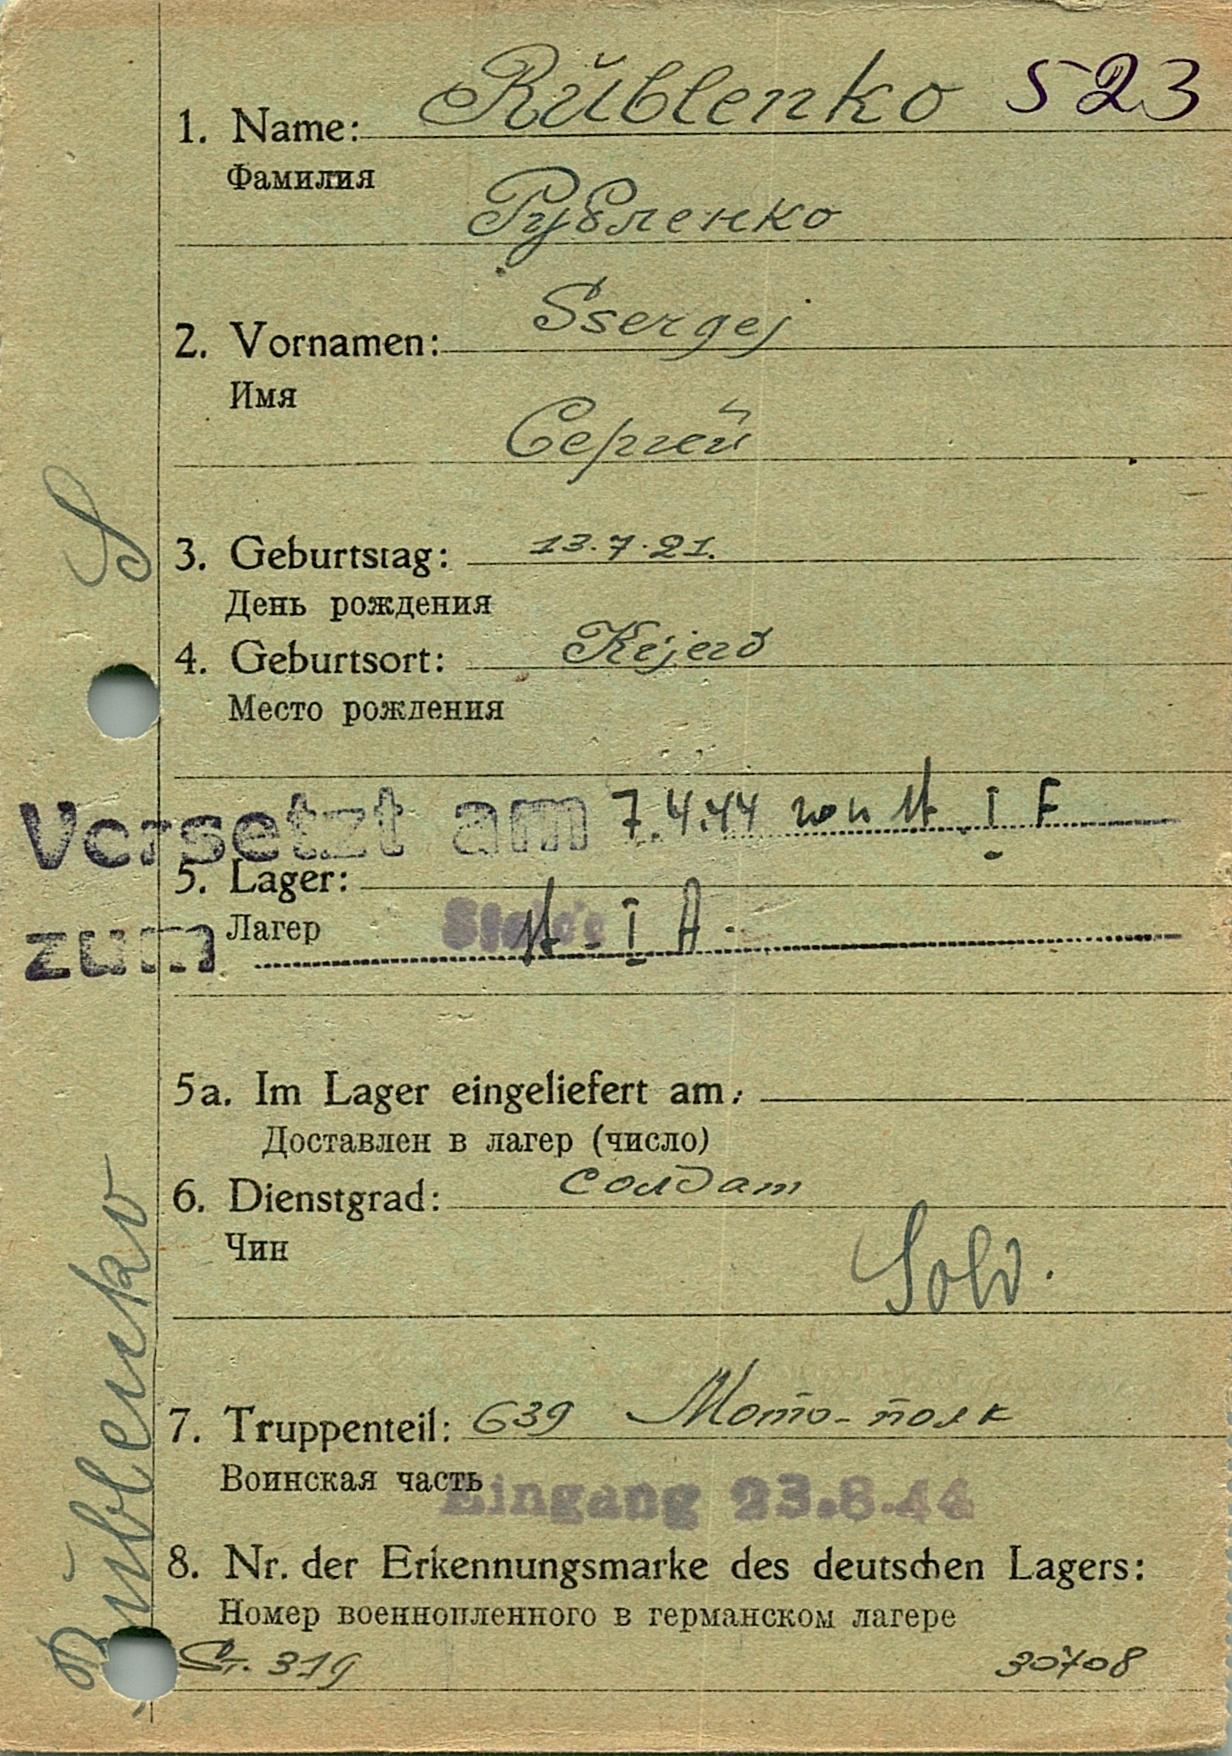 1. Name: Rŭblenko 523
Фамилия
Рубленко
2. Vornamen: Ssergej
Имя
Сергей
S
3. Geburtstag: 13.7.21.
День рождения
4. Geburtsort: Kijew
Место рождения
Versetzt am 7.4.44 von St. I F
5. Lager:
Лагер
zum St. I A.
5a. Im Lager eingeliefert am:
Доставлен в лагер (число)
6. Dienstgrad: солдат
Чин
Sold.
Rŭblenko
7. Truppenteil: 639 Мото-полк
Воинская часть
Eingang 23.8.44
8. Nr. der Erkennungsmarke des deutschen Lagers:
Номер военнопленного в германском лагере
Ст. 319 30708